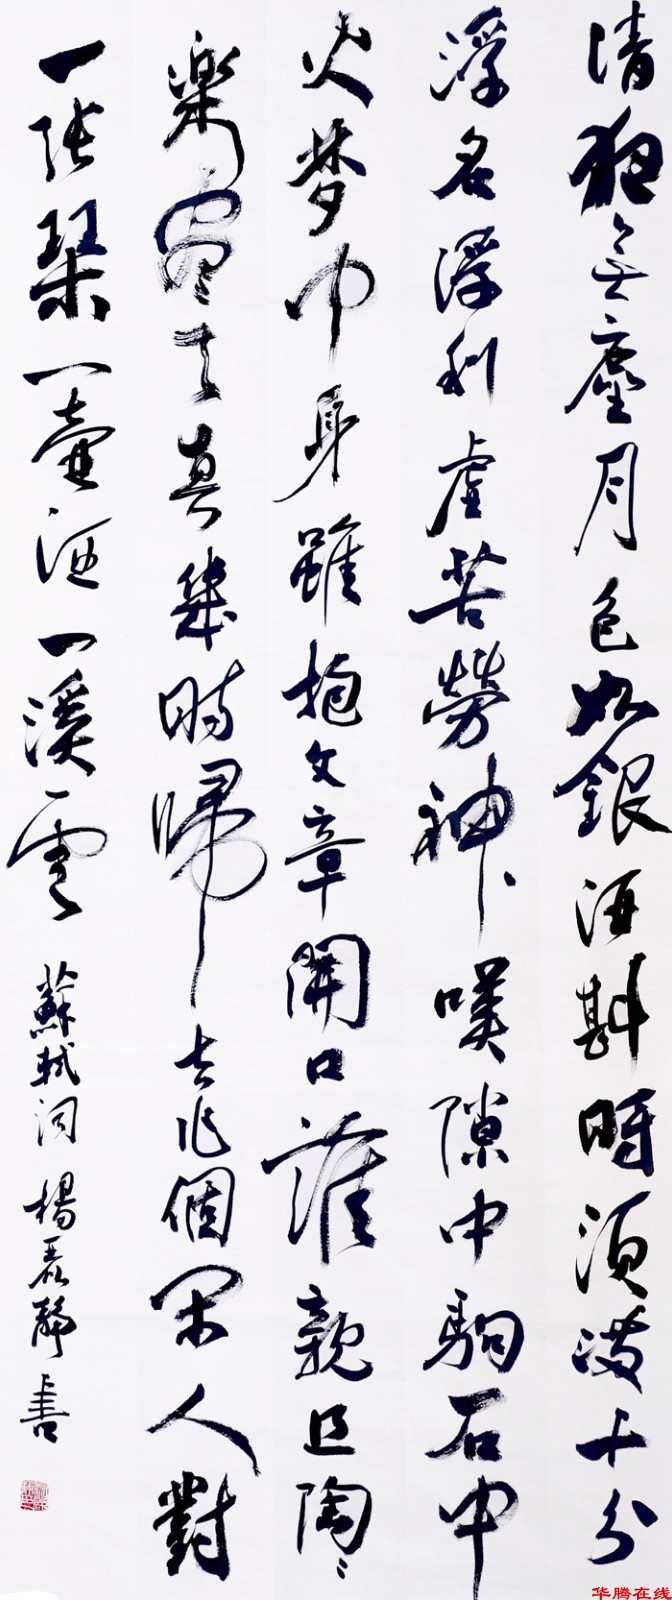 清夜無塵月色如銀酒斟時須滿十分
浮名浮利虛苦勞神嘆隙中駒石中
火梦中身雖抱文章開口誰親且陶〻
樂盡天真幾時歸去作個閑人對
一張琴一壺酒一溪雲 蘇軾詞 楊 靜書
华腾在线